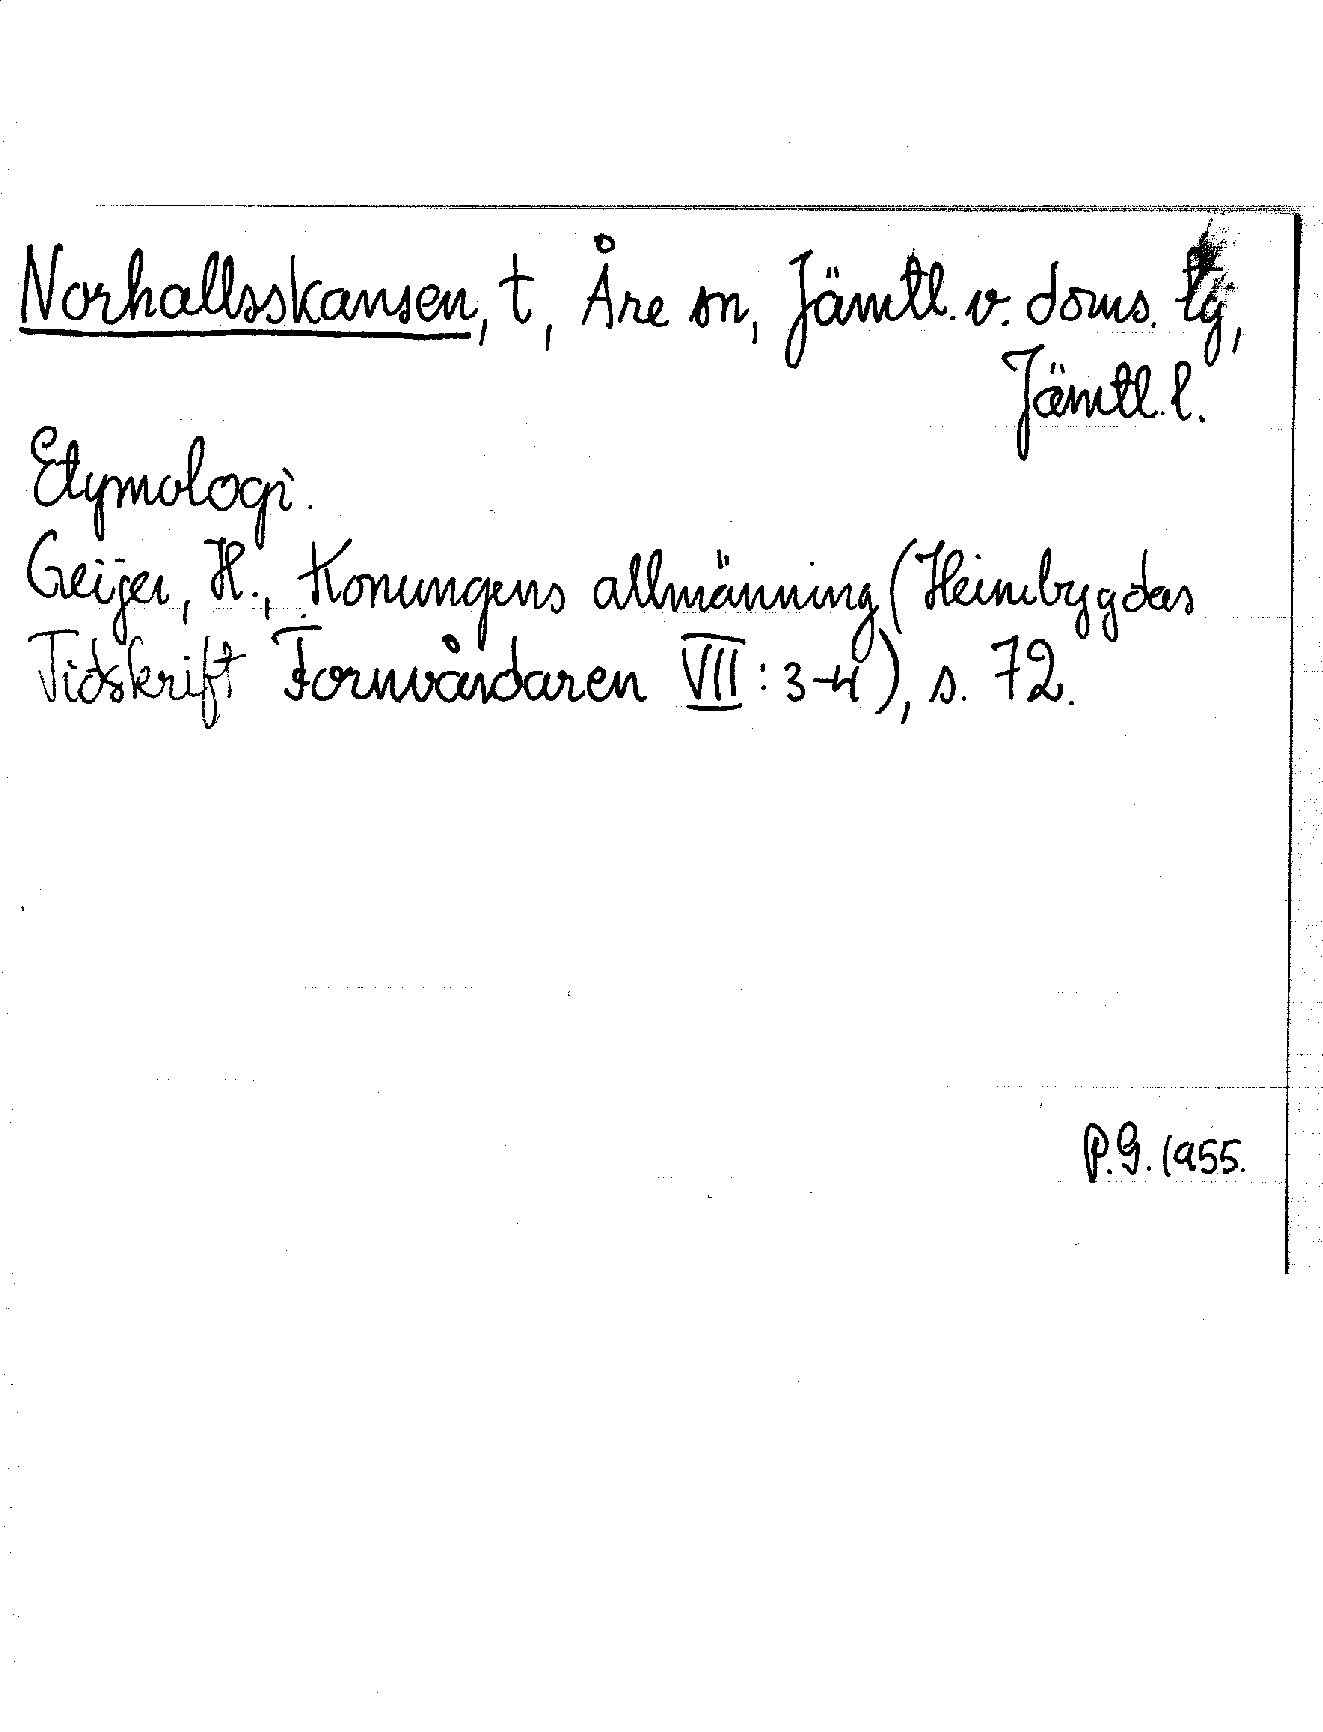 Norhallsskansen, t, Åre sn, Jämtl. v. doms. tg,
Jämtl. l.
Etymologi.
Geijer, H., Konungens allmänning (Heimbygdas
Tidskrift Fornvårdaren VII: 3-4), s. 72.
P.G. 1955.